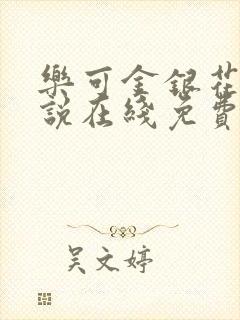 樂可金銀花
說在綫免費
吴文婷